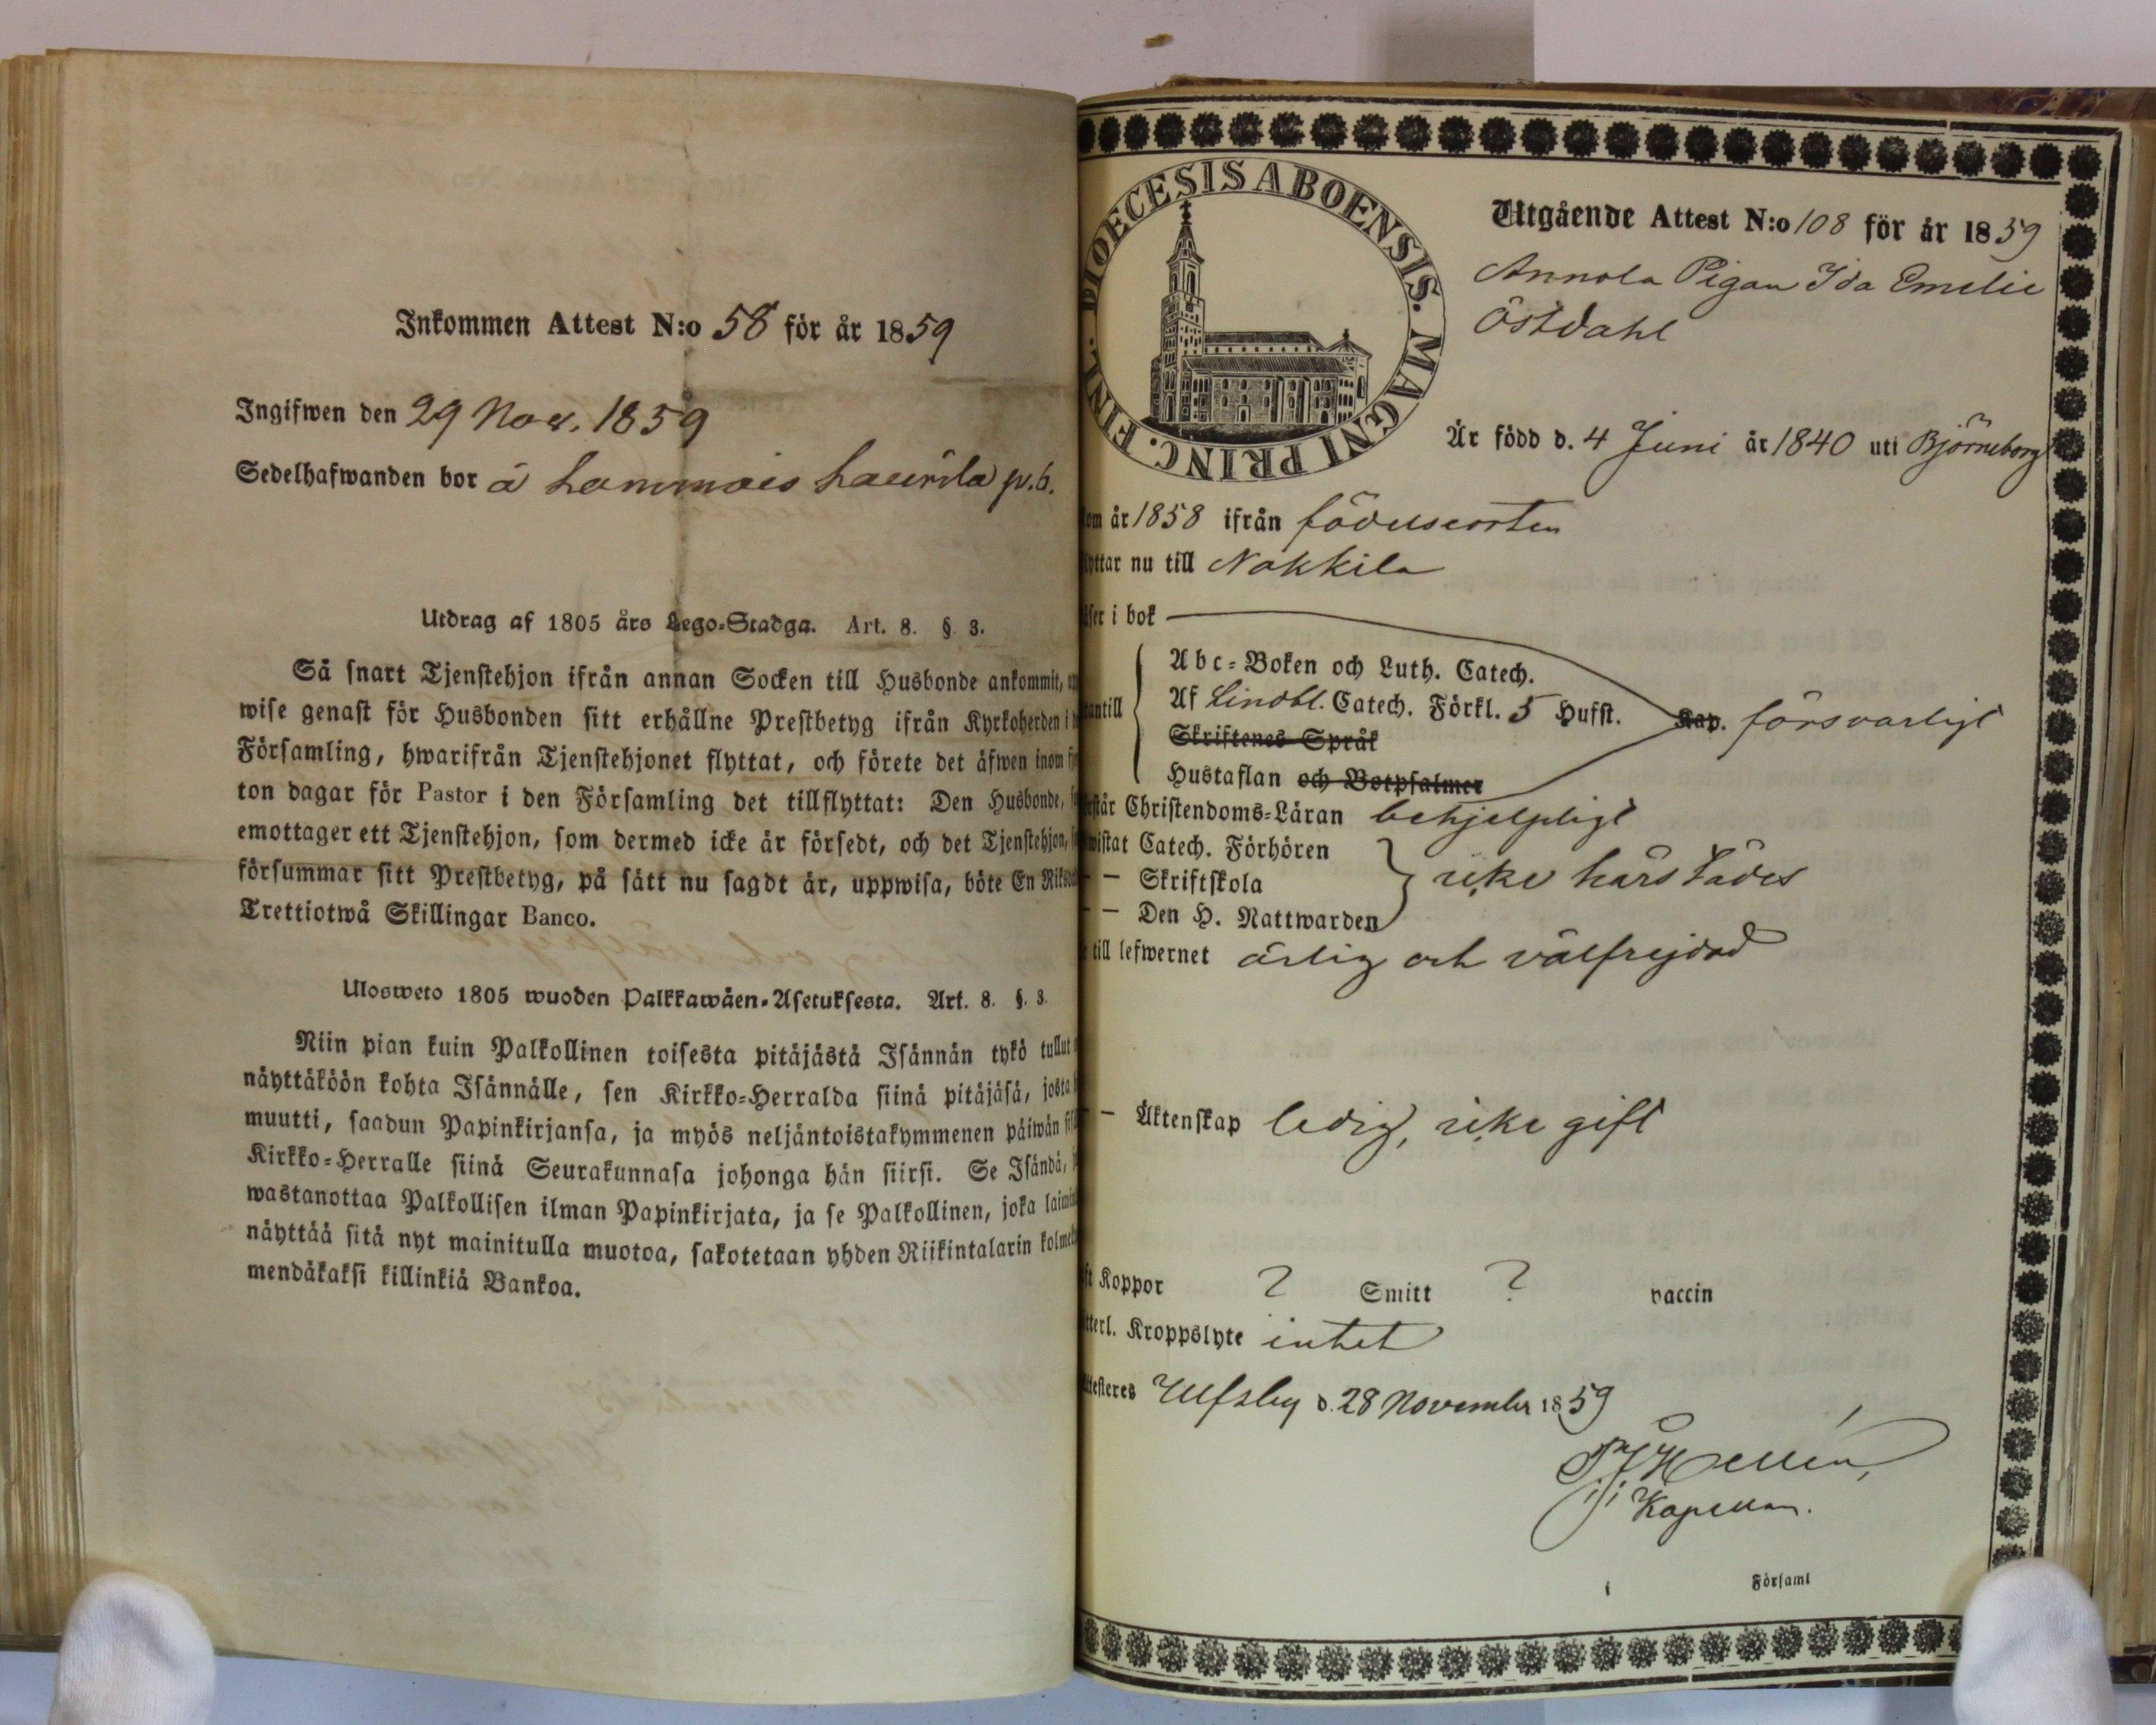 Inkommen Attest N:o 58 för år 1859
Ingifwen den 29 Nov. 1859
Sedelhafwanden bor å Lammais Laurila p.6.
Utdrag af 1805 års Lego-Stadga. Art. 8. § 3.
Så snart Tjenstehjon ifrån annan Socken till Husbonde ankommit,
wise genast för Husbonden sitt erhållne Prestbetyg ifrån Kyrkoherden i
Församling, hwarifrån Tjenstehjonet flyttat, och förete det äfwen inom
ton dagar för Pastor i den Församling det tillflyttat: Den Husbonde,
emottager ett Tjenstehjon, som dermed icke är försedt, och det Tjenstehjon,
försummar sitt Prestbetyg, på sätt nu sagdt är, uppwisa, böte En
Trettiotwå Skillingar Banco.
Ulosweto 1805 wuoden Palkkawäen-Asetuksesta. Art. 8. §. 3.
Niin pian kuin Palkollinen toisesta pitäjästä Isännän tykö tullut
näyttäköön kohta Isännälle, sen Kirkko-Herralda siinä pitäjäsä, josta
muutti, saadun Papinkirjansa, ja myös neljäntoistakymmenen päiwän
Kirkko-Herralle siinä Seurakunnasa johonga hän siirsi. Se Isändä,
wastanottaa Palkollisen ilman Papinkirjata, ja se Palkollinen, joka
näyttää sitä nyt mainitulla muotoa, sakotetaan yhden Riikintalarin
mendäkaksi killinkiä Bankoa.
DIOECESIS ABOENSIS. MAGNI PRINC. FINL.
Utgående Attest N:o 108 för år 1859
Annola Pigan Ida Emelie
Östdahl
Är född d. 4 Juni år 1840 uti Björneborg
om år 1858 ifrån födelseorten
yttar nu till Nakkila
äser i bok
Abc-Boken och Luth. Catech.
antill Af Lindbl. Catech. Förkl. 5 Hufst. Kap. försvarligt
Skriftenes Språk
Hustaflan och Botpsalmer
står Christendoms-Läran behjelpligt
wistat Catech. Förhören
— Skriftskola icke härstädes
— Den H. Nattwarden
till lefwernet ärlig och välfrejdad
— Äktenskap ledig, icke gift
ft Koppor ? Smitt ? vaccin
tterl. Kroppslyte intet
ttesteres Ulfsby d. 28 November 1859
Hellén,
Kapellan.
i Församl